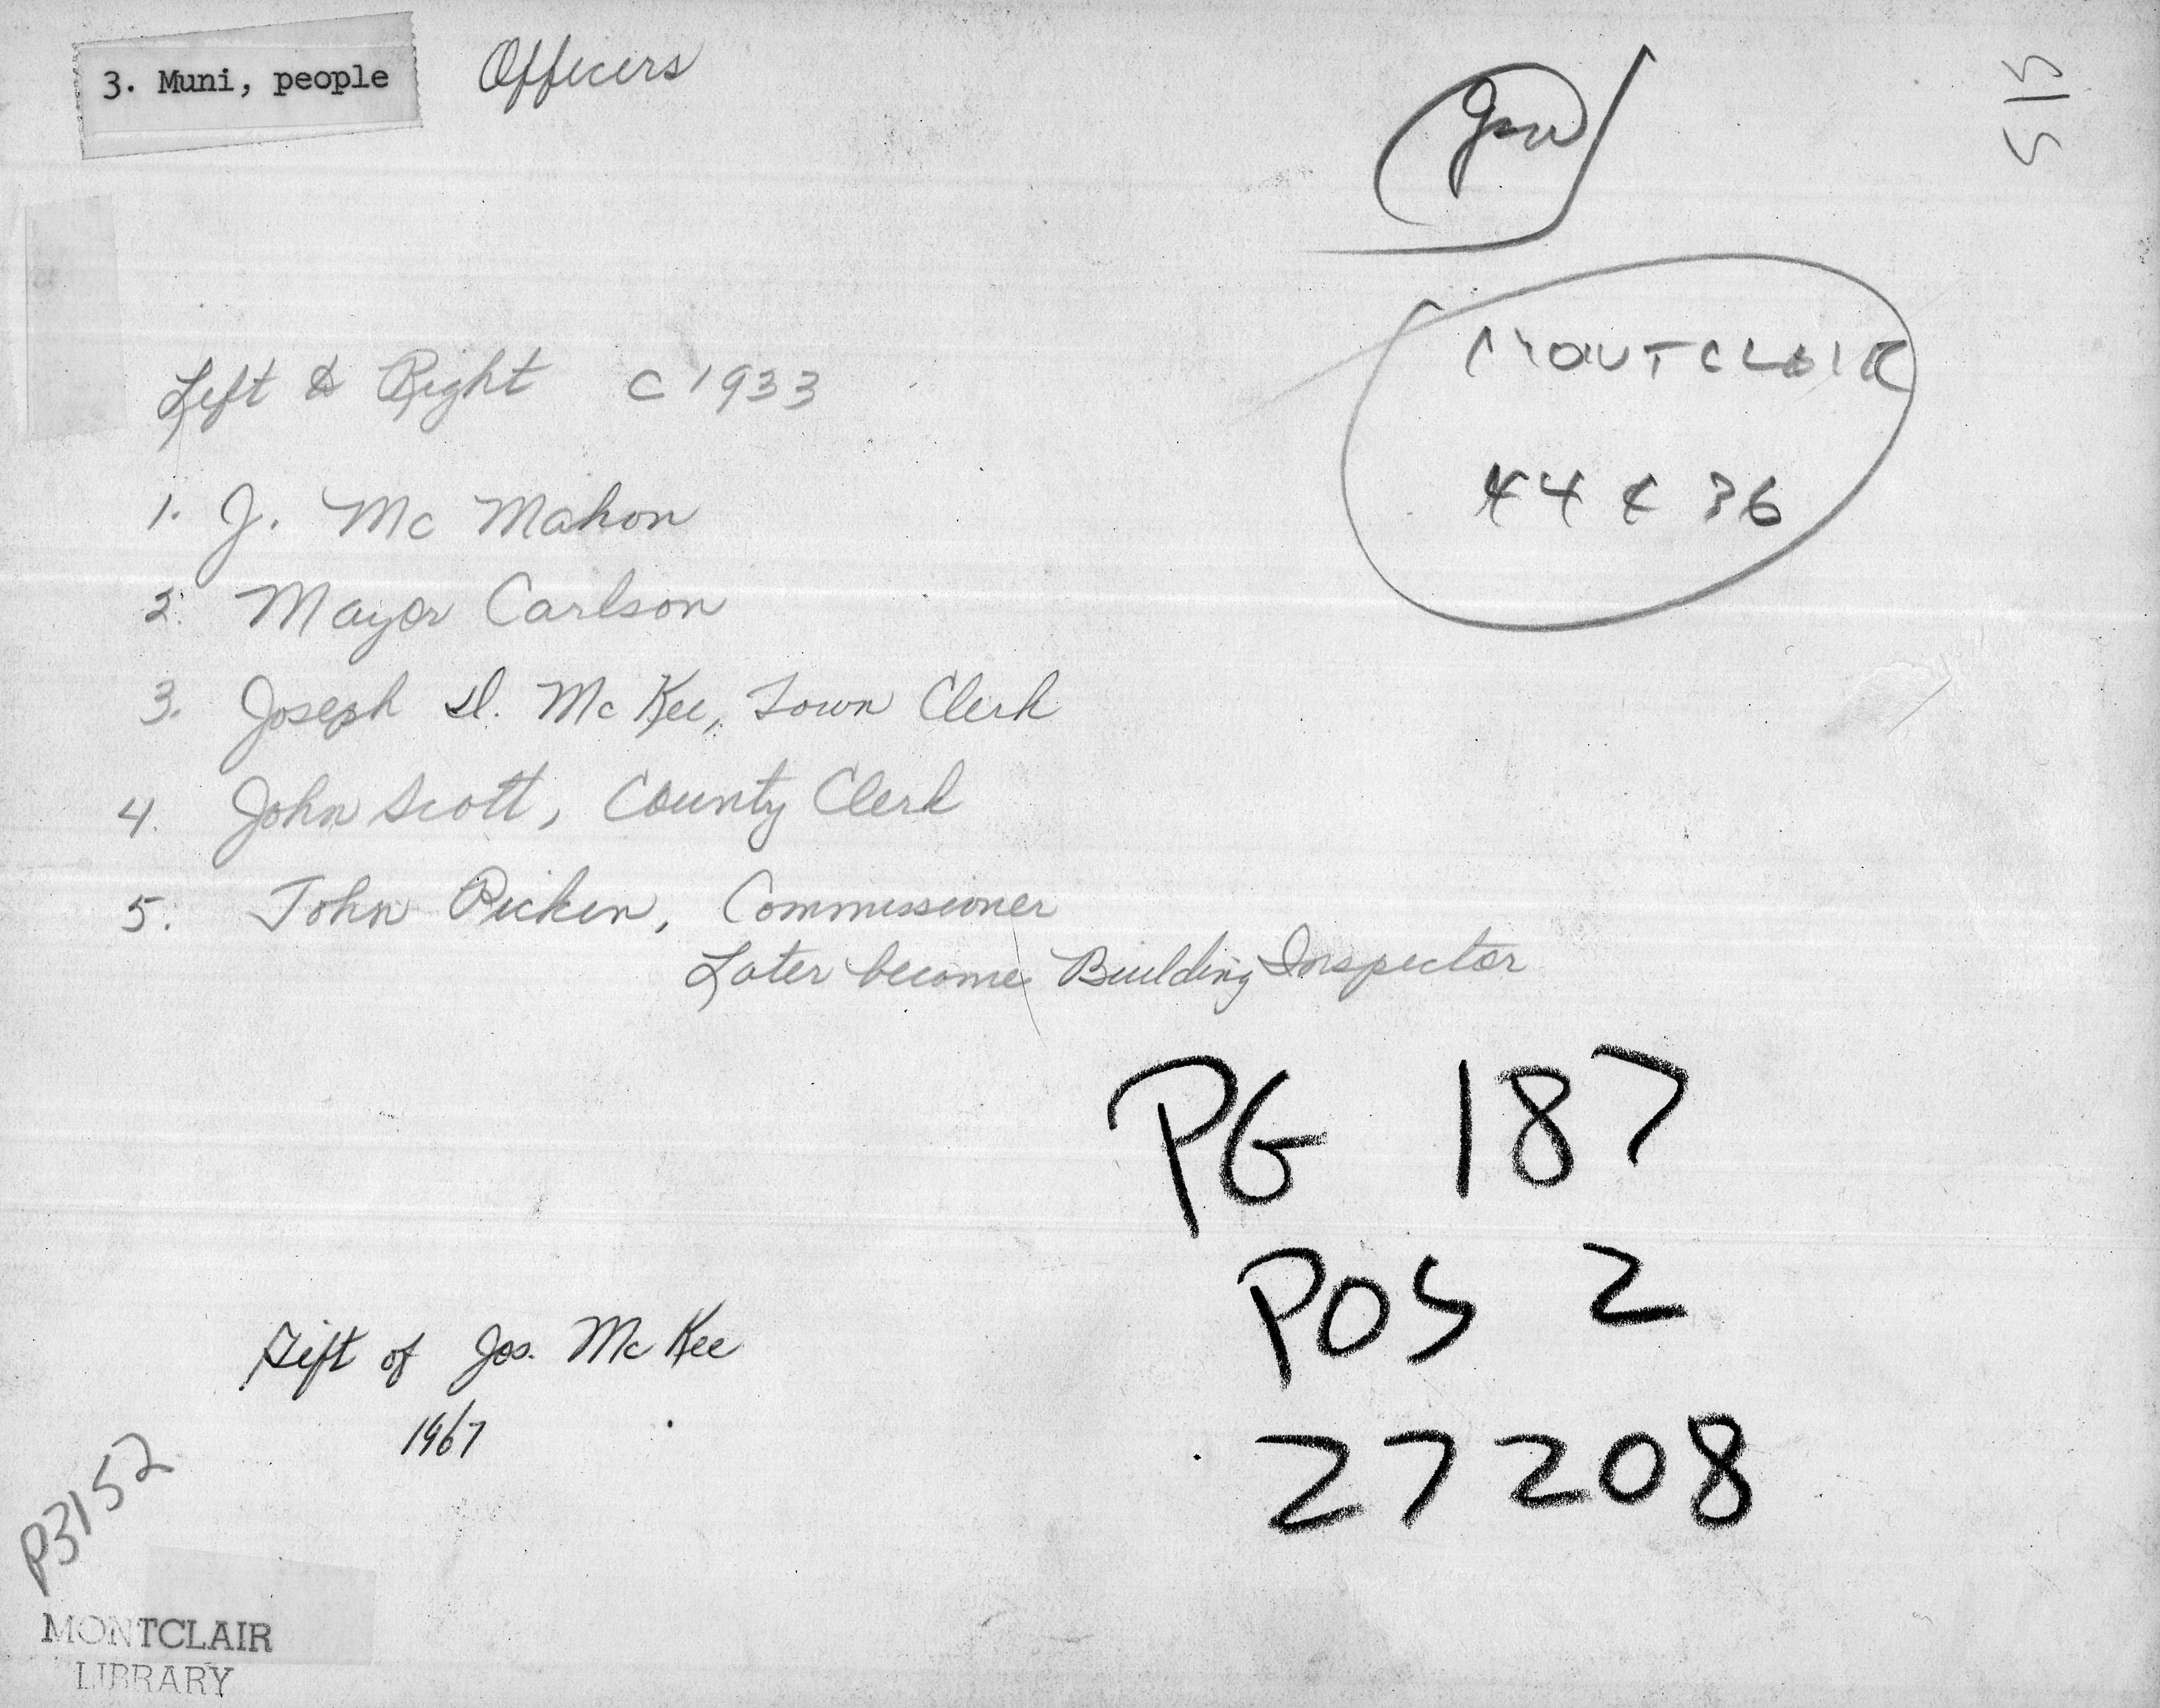 3. Muni, people Officers
515
Left & Right c 1933
MONTCLAIR
1. J. Mc Mahon
44 & 36
2. Mayor Carlson
3. Joseph D. Mc Kee, Town Clerk
4. John Scott, County Clerk
5. John Picken, Commissioner
Later become Building Inspector
PG 187
POS 2
27208
Gift of Jos. Mc Kee
1967
P3152
MONTCLAIR
LIBRARY